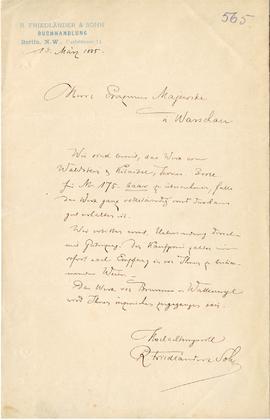 565
R. FRIEDLÄNDER & SOHN
BUCHHANDLUNG
Berlin, N.W., Carlstrasse 11.
13. März 1885
Herrn Erasmus Majewski
in Warschau
Wir sind bereit, das Werk von
Waldstein & Kitaibel,
für Mk 175. baar zu übernehmen, falls
das Werk ganz vollständig und durchaus
gut erhalten ist.
Wir erbitten Zusendung direct
sofort nach Empfang in von Ihnen zu bestim-
mender Weise.
Das Werk von Brunner v. Wattenwyl
wird Ihnen inzwischen zugegangen sein.
Hochachtungsvoll
R. Friedländer & Sohn